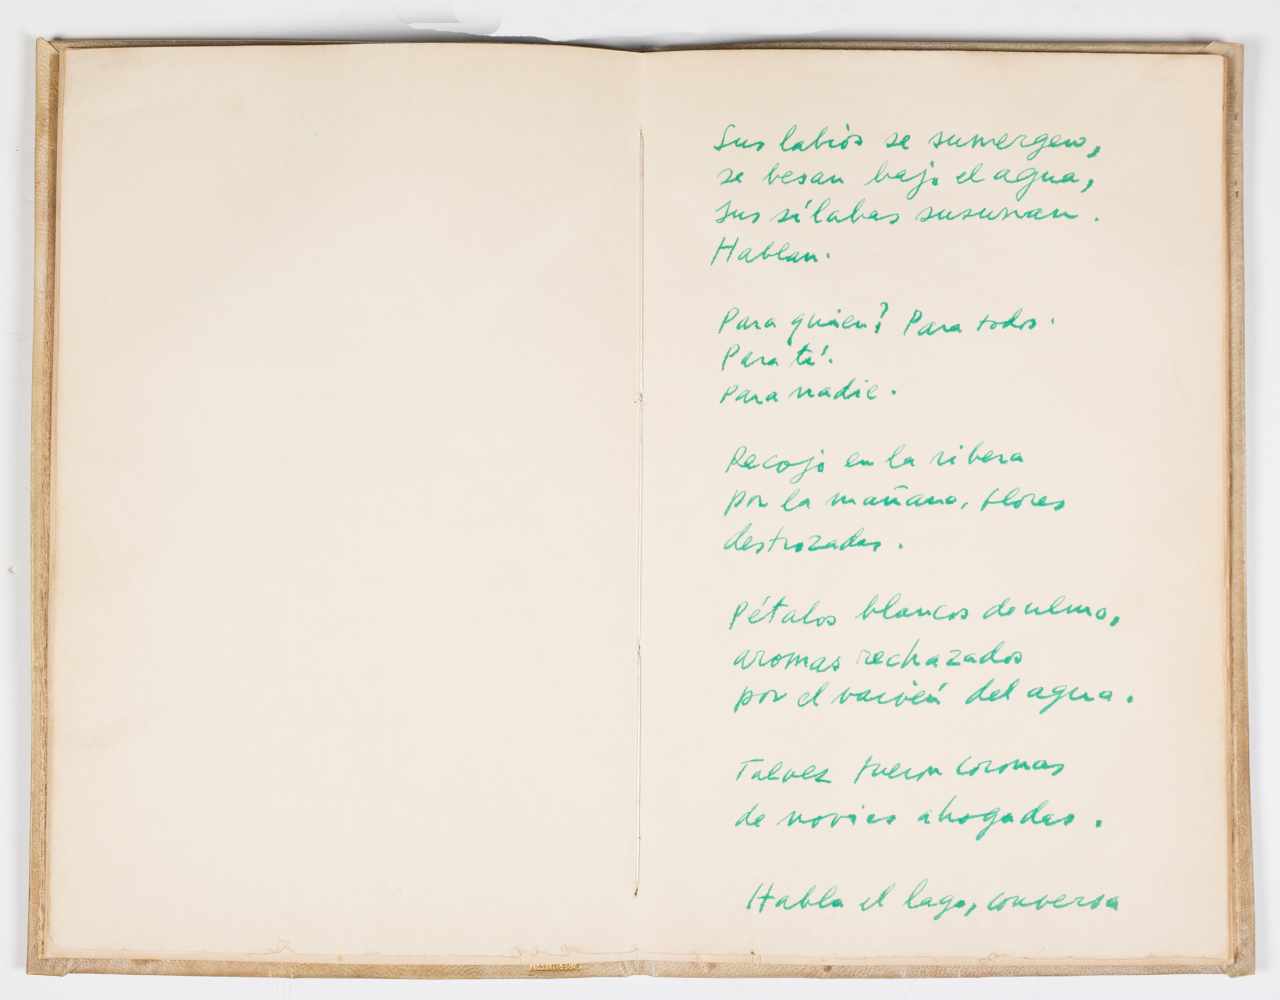 Sus labios se sumergen,
se besan bajo el agua,
sus sílabas susurran.
Hablan.
Para quién? Para todos.
Para tí.
Para nadie.
Recojo en la ribera
por la mañana, flores
destrozadas.
Pétalos blancos de ulmo,
aromas rechazados
por el vaivén del agua.
Talvez fueron coronas
de novias ahogadas.
Habla el lago, conversa